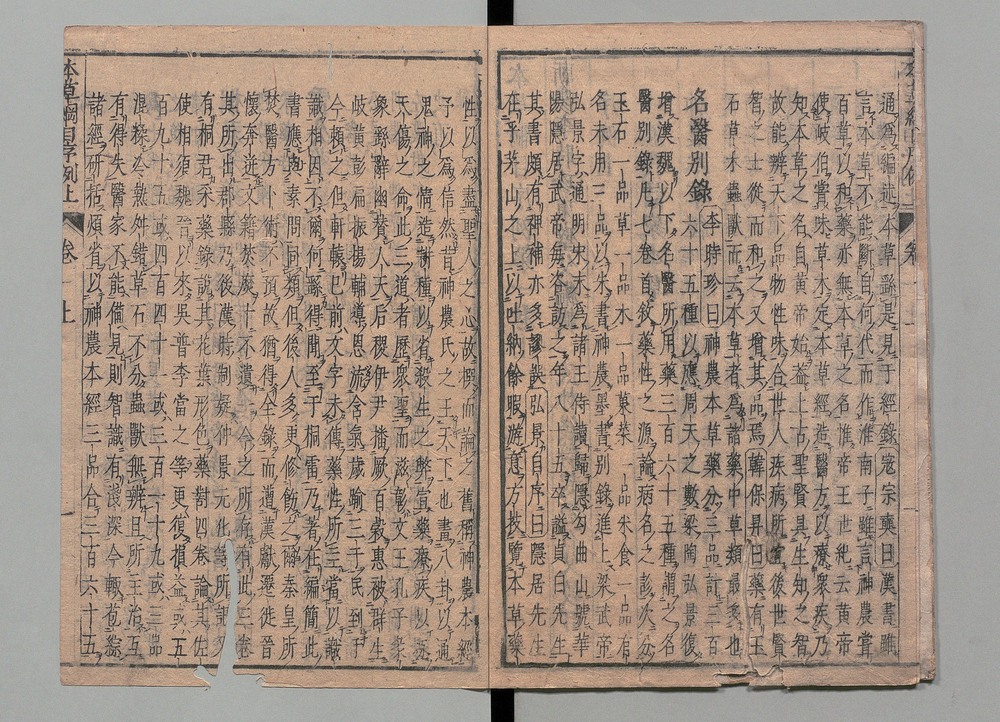 通爲編述本草繇是見于經錄寇宗奭曰漢書雖
言本草不能斷自何代而作淮南子雖言神農嘗
百草以和藥亦無本草之名惟帝王世紀云黃帝
使岐伯嘗味草木定本草經造醫方以療衆疾乃
知本草之名自黃帝始蓋上古聖賢具生知之智
故能辨天下品物性味合世人疾病所宜後世賢
智之士從而和之又增其品焉韓保昇曰藥有玉
石草木蟲獸而云本草者爲諸藥中草類最多也
名醫別錄李時珍曰神農本草藥分三品計三百
六十五種以應周天之數梁陶弘景復
增漢魏以下名醫所用藥三百六十五種謂之名
醫別錄凡七卷首敘藥性之源論病名之彭次分
玉石一品草一品木一品菓菜一品米食一品有
名未用三品以朱書神農墨書別錄進上梁武帝
弘景字通明宋末爲諸王侍讀歸隱勾曲山號華
陽隱居武帝每咨訪之年八十五卒謚貞白先生
其書頗有裨補亦多謬誤弘景自序曰隱居先生
在乎茅山之上以吐納餘暇游意方技覽本草藥
性以爲盡聖人之心故撰而論之舊稱神農本經
予以爲信然昔神農氏之王天下也畫八卦以通
鬼神之情造耕種以省殺生之弊宣藥療疾以拯
夭傷之命此三道者歷衆聖而滋彰文王孔子彖
象繇辭幽贊人天后稷伊尹播厥百穀惠被群生
岐黃彭扁振揚輔導恩流含氣歲踰三千民到于
今賴之但軒轅已前文字未傳藥性所主當以識
識相因不爾何繇得聞至于桐雷乃著在編簡此
書應與素問同類但後人多更修飭之爾秦皇所
焚醫方卜術不預故猶得全錄而遭漢獻遷徙晉
懷奔迸文籍焚靡十不遺一今之所存有此三卷
其所出郡縣乃後漢時制疑仲景元化等所記又
有桐君采藥錄說其花葉形色藥對四卷論其佐
使相須魏晉以來吳普李當之等更復損益或五
百九十五或四百四十一或三百一十九或三品
混糅冷熱舛錯草石不分蟲獸無辨且所主治互
有得失醫家不能備見則智識有淺深今輒苞綜
諸經研括煩省以神農本經三品合三百六十五
本草綱目序例上 卷一上 一